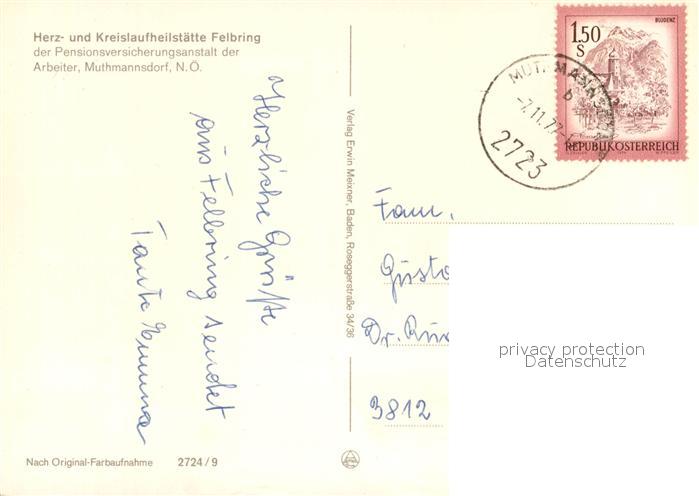 Herz- und Kreislaufheilstätte Felbring
der Pensionsversicherungsanstalt der
Arbeiter, Muthmannsdorf, N.Ö.
Herzliche Grüße
aus Felbring sendet
Tante Emma
Nach Original-Farbaufnahme 2724/9
Verlag Erwin Meixner, Baden, Roseggerstraße 34/36
BLUDENZ
1.50
S
REPUBLIK ÖSTERREICH
b
-7.11.77-
2723
Fam.
Dr.
3812
privacy protection
Datenschutz